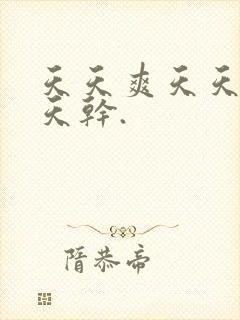 天天爽天天
天幹.
隋恭帝